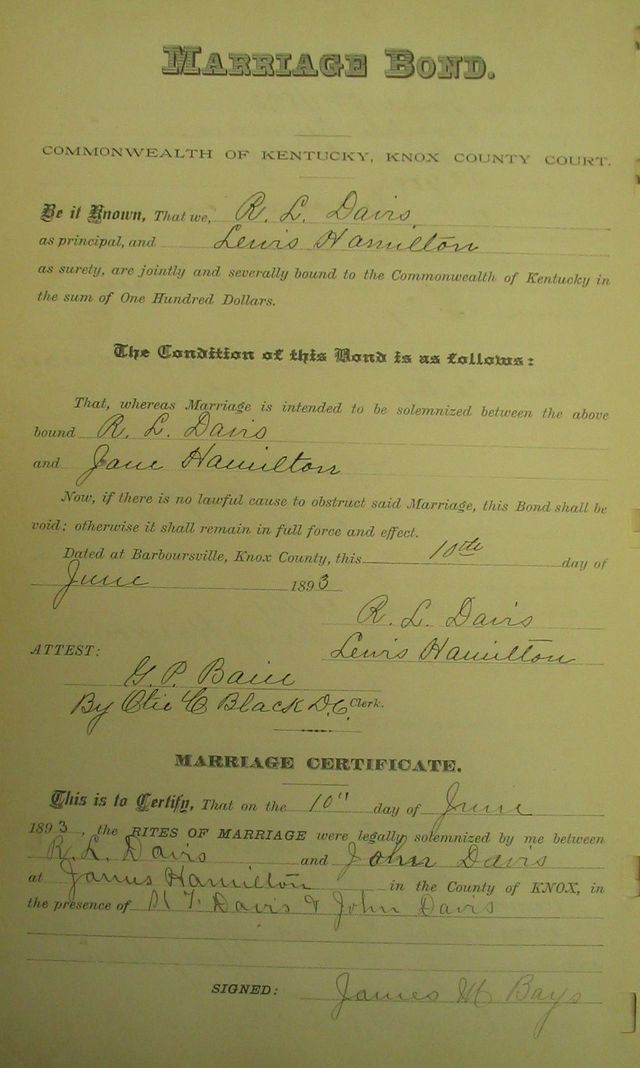 MARRIAGE BOND.
COMMONWEALTH OF KENTUCKY, KNOX COUNTY COURT.
Be it Known, That we, R. L. Davis,
as principal, and Lewis Hamilton
as surety, are jointly and severally bound to the Commonwealth of Kentucky in
the sum of One Hundred Dollars.
The Condition of this Bond is as follows:
That, whereas Marriage is intended to be solemnized between the above
bound R. L. Davis
and Jane Hamilton
Now, if there is no lawful cause to obstruct said Marriage, this Bond shall be
void; otherwise it shall remain in full force and effect.
Dated at Barboursville, Knox County, this 10th day of
June 1893
R. L. Davis
Lewis Hamilton
ATTEST:
G. P. Bain
By Otie C Black D.C. Clerk.
MARRIAGE CERTIFICATE.
This is to Certify, That on the 10" day of June
1893, the RITES OF MARRIAGE were legally solemnized by me between
R. L. Davis and John Davis
at James Hamilton in the County of KNOX, in
the presence of Davis & John Davis
SIGNED: James M Bays